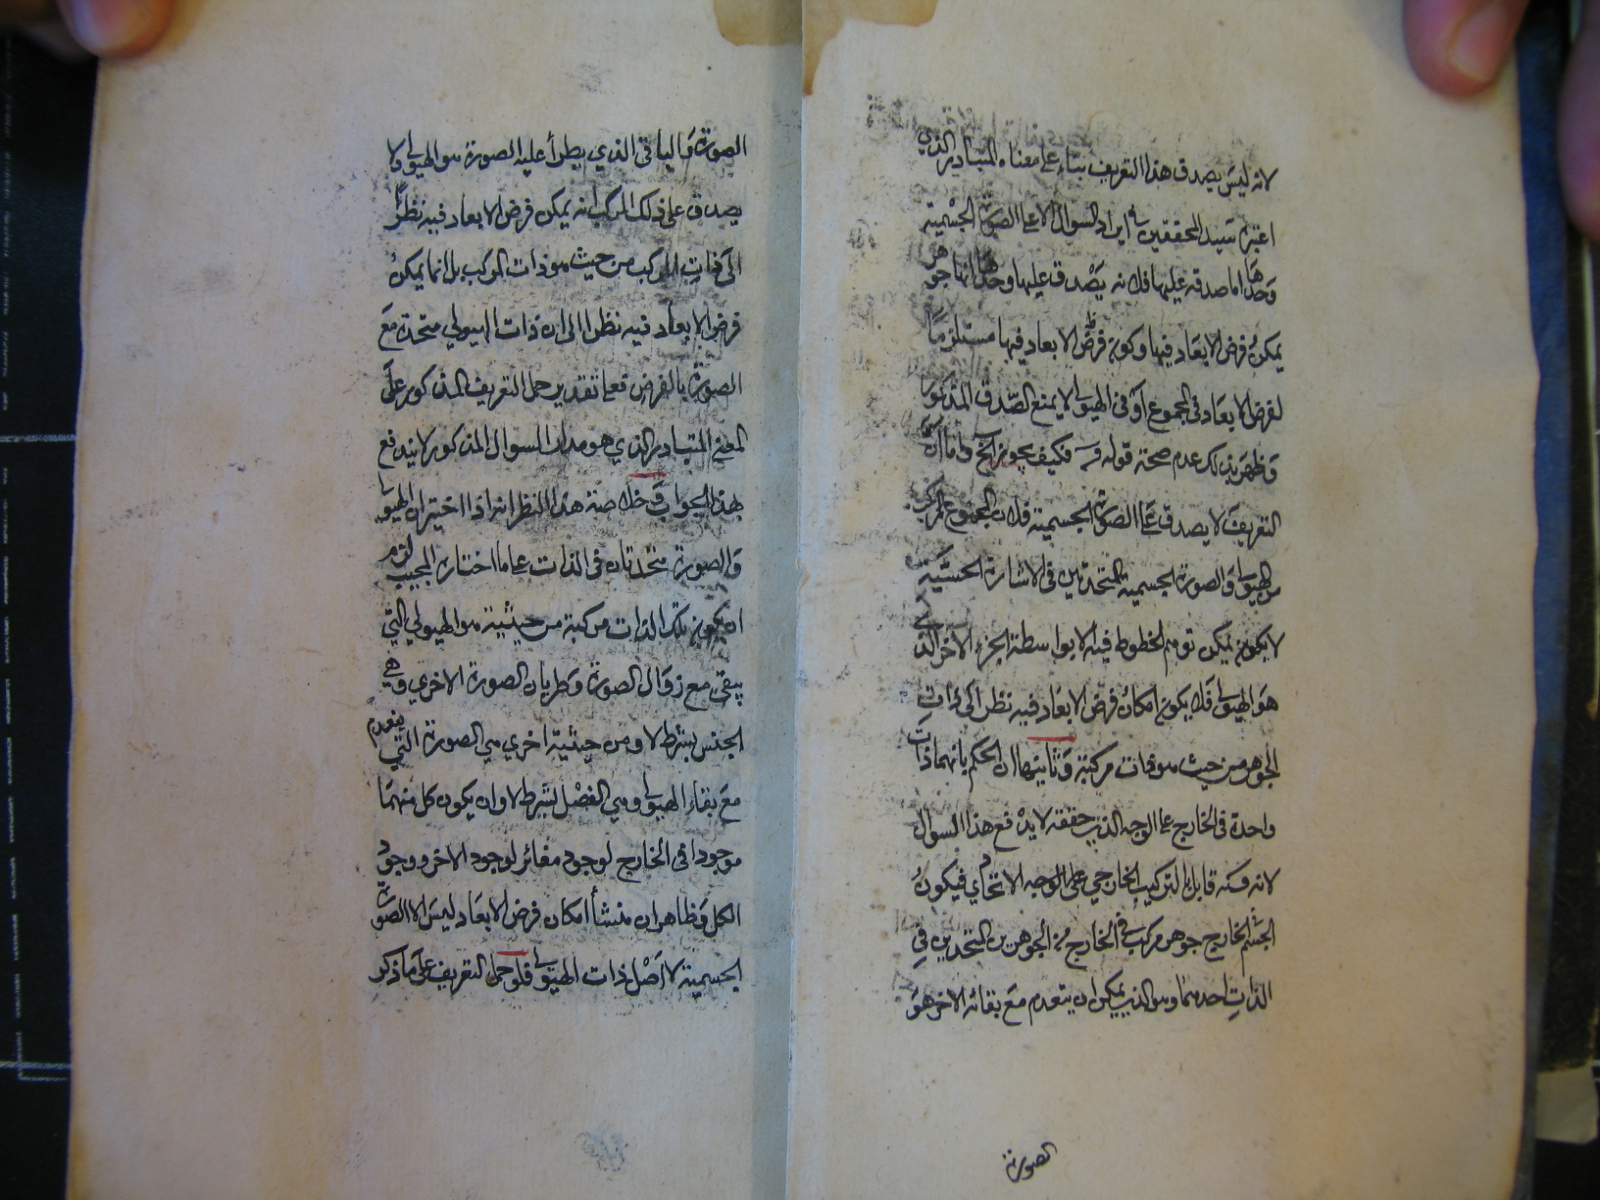 لانه ليس يصدق هذا التعريف بناء على معناه المتبادر الذي
اعتبره سيد المحققين في أيراد السوال الا على الصورة الجسمية
وحدها اما صدقه عليها فلانه يصدق عليها وحدها انها جوهر
يمكن فرض الابعاد فيها وكون فرض الابعاد فيها مستلزما
لفرض الابعاد في المجموع او في الهيولى لا يمنع الصدق المذكور
وظهر بذلك عدم صحة قوله قه فكيف يجوز الخ واما ان
التعريف لا يصدق على الصورة الجسمية فلان المجموع المركب
من الهيولى والصورة الجسمية المتحدتين في الاشارة الحسية
لا يكون يمكن توهم الخطوط فيه الا بواسطة الجزء الآخر الذي
هو الهيولى فلا يكون امكان فرض الابعاد فيه نظرا الى ذات
الجوهر من حيث هو ذات مركبة وثانيها ان الحكم بانهما ذات
واحدة في الخارج على الوجه الذي حققه لا يدفع هذا السوال
لانه قابل التركيب الخارجي على الوجه الاتحادي فيكون
الجسم الخارج جوهر مركب في الخارج من الجوهرين المتحدين في
الذات احدهما وهو الذي يمكن ان ينعدم مع بقائه الاخر هو
الصورة
الصورة والباقي الذي يطرأ عليه الصورة هو الهيولى ولا
يصدق على ذلك المركب انه يمكن فرض الابعاد فيه نظرًا
الى ذات المركب من حيث هو ذات المركب بل انما يمكن
فرض الابعاد فيه نظرا الى ان ذات الهيولى متحدة مع
الصورة بالفرض فعلى تقدير حمل التعريف المذكور على
المعنى المتبادر الذي هو مدار السوال المذكور لا يندفع
بهذا الجواب وخلاصة هذا النظر انه اذا اختير ان الهيولى
والصورة متحدتان في الذات على ما اختاره المجيب لزم
ان يكون تلك الذات مركبة من حيثية هو الهيولى التي
يبقى مع زوال الصورة وطريان الصورة الاخرى وهي
الجنس بشرط لا ومن حيثية اخرى هي الصورة التي ينعدم
مع بقاء الهيولى وهي الفصل بشرط لا وان يكون كل منهما
موجودا في الخارج لوجود مغائر لوجود الاخر ووجود
الكل وظاهر ان منشأ امكان فرض الابعاد ليس الا الصورة
الجسمية لا اصل ذات الهيولى فلو حمل التعريف على ما ذكر